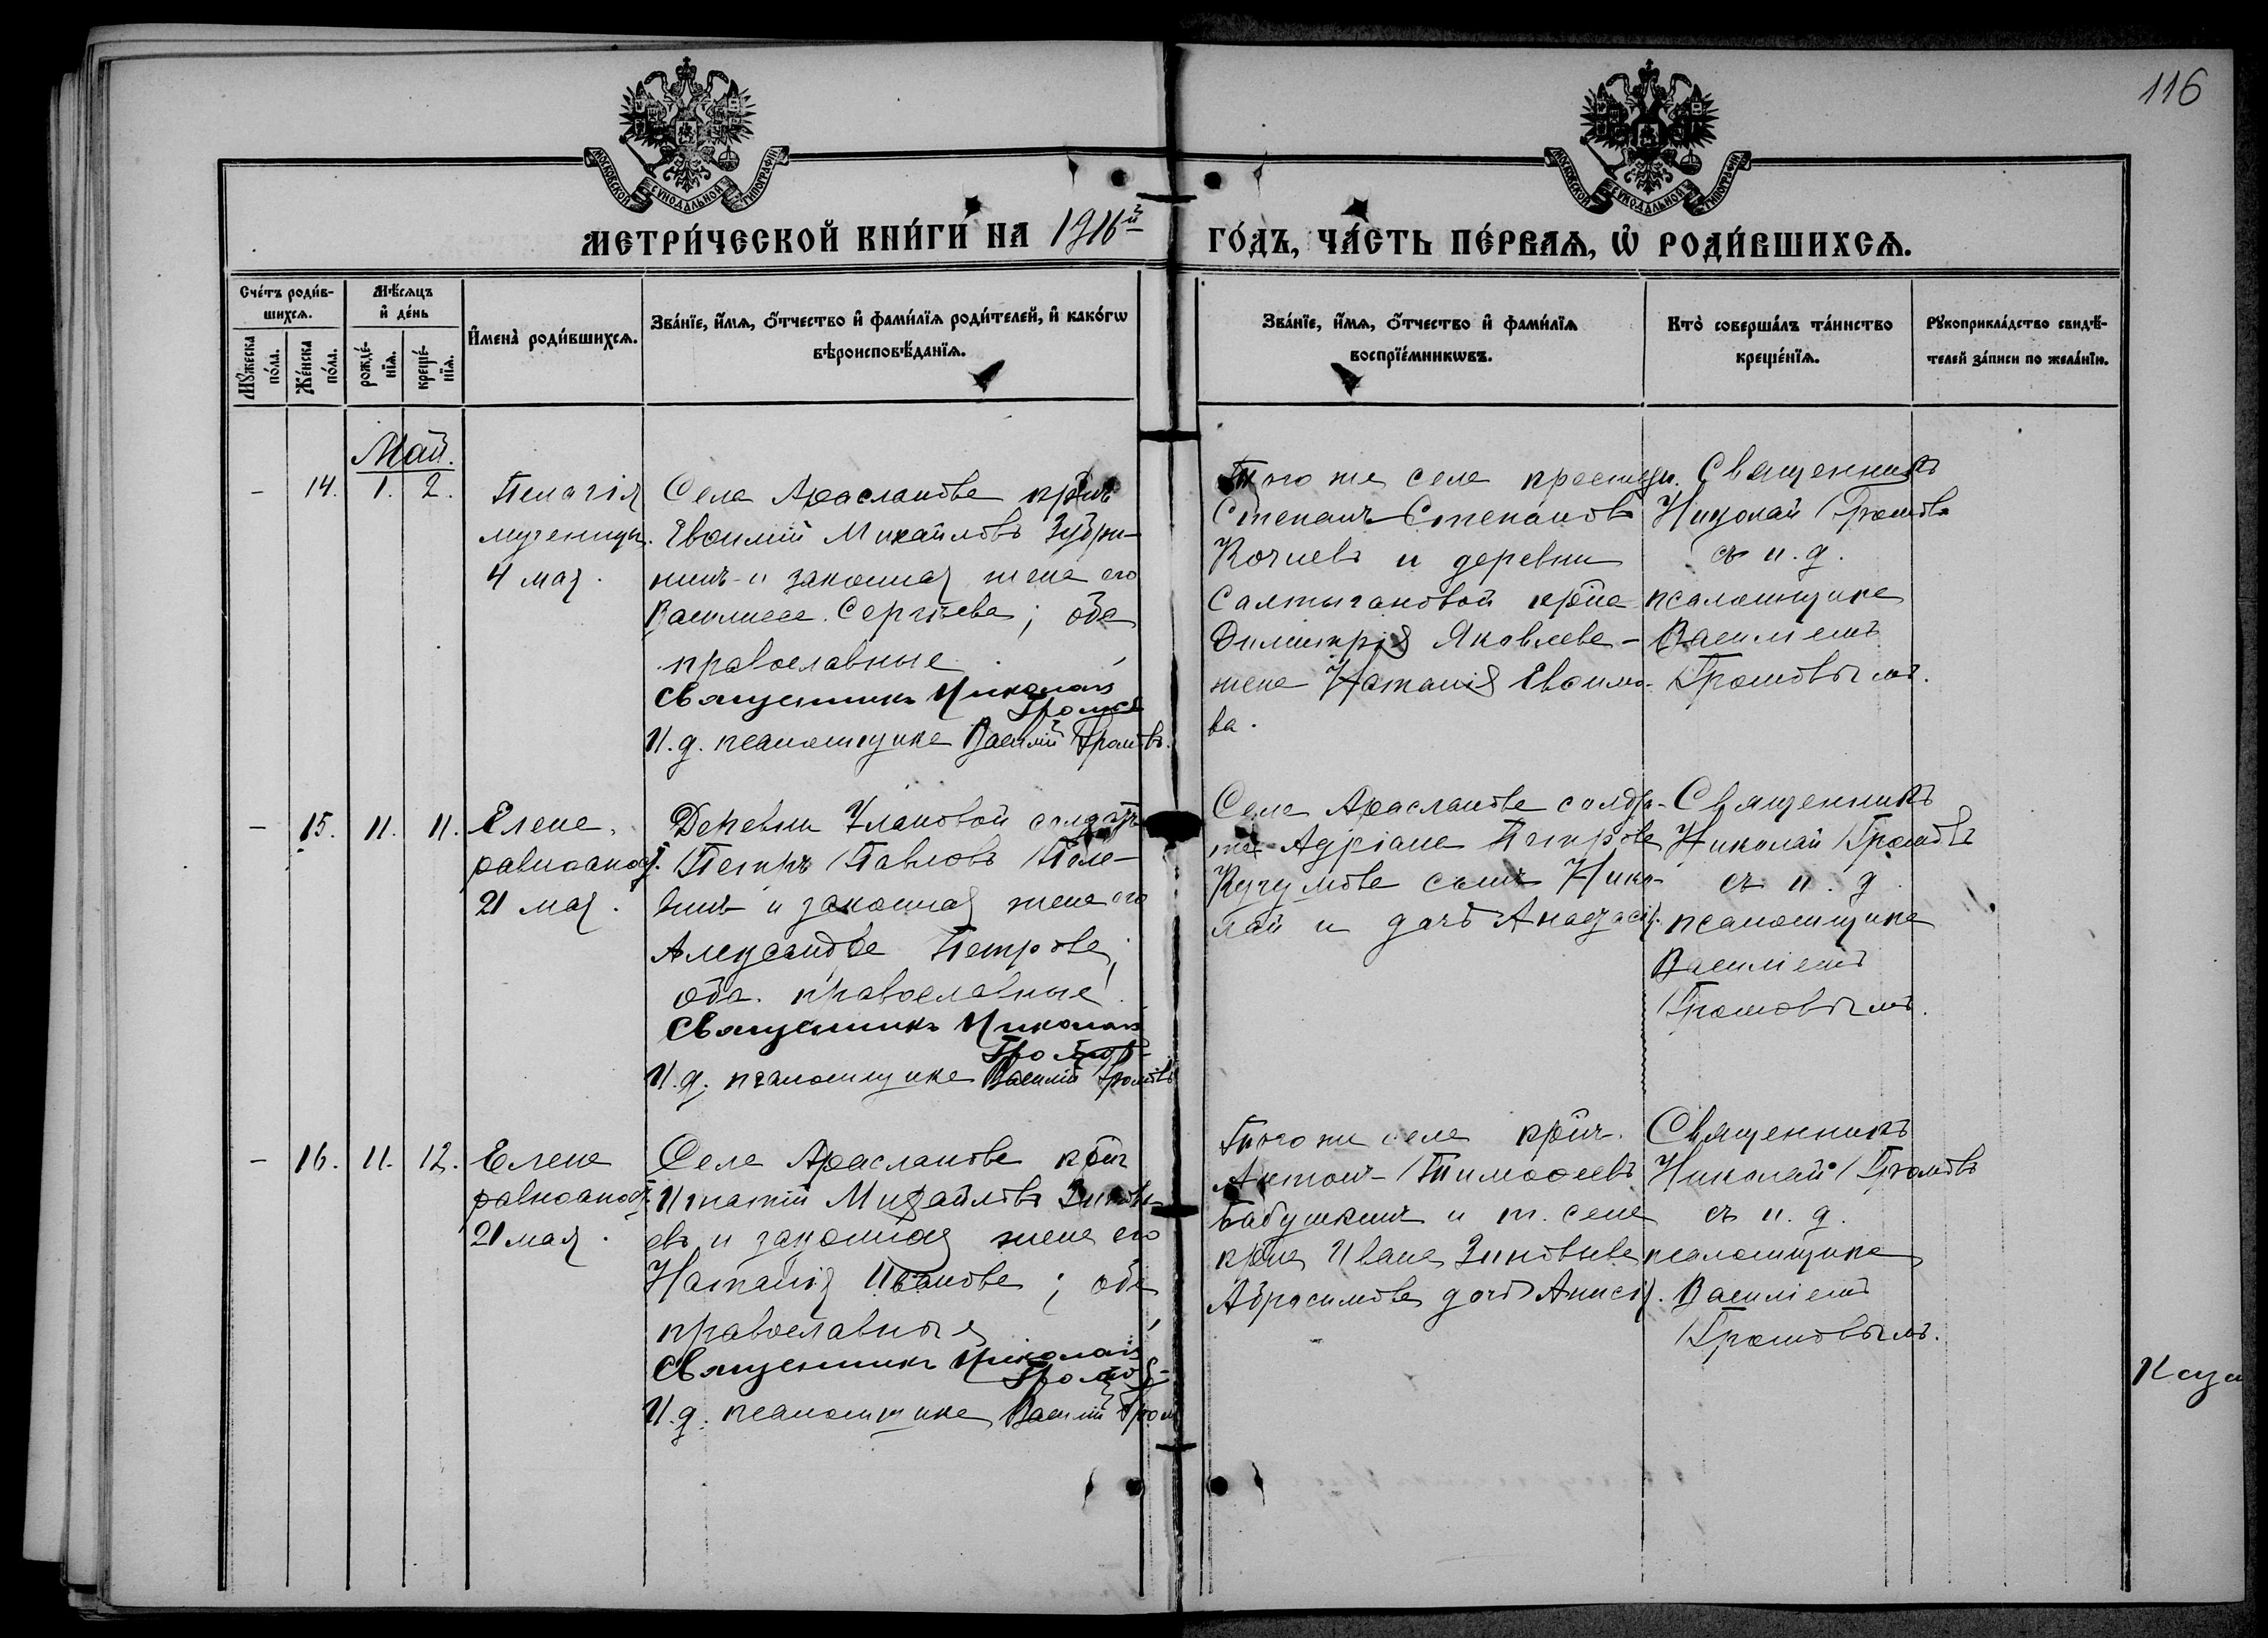 116
МОСКОВСКОЙ СУНОДАЛЬНОЙ ТИПОГРАФІИ
МОСКОВСКОЙ СУНОДАЛЬНОЙ ТИПОГРАФІИ
МЕТРИ́ЧЕСКОЙ КНИ́ГИ НА 1916й ГО́ДЪ, ЧА́СТЬ ПЕ́РВАѦ, Ѡ РОДИ́ВШИХСѦ.
Сче́тъ роди́в-
шихсѧ.
Мꙋ́жеска по́ла.
Же́нска по́ла.
Мѣ́сѧцъ
и҆ де́нь
рожде́-
нїѧ.
креще́-
нїѧ.
И҆мена̀ роди́вшихсѧ.
Зва́нїе, и҆́мѧ, ѻ҆́тчество и҆ фами́лїѧ роди́телей, и҆ како́гѡ
вѣроисповѣ́данїѧ.
Зва́нїе, и҆́мѧ, ѻ҆́тчество и҆ фами́лїѧ
воспрїе́мникѡвъ.
Кто̀ соверша́лъ та́инство
креще́нїѧ.
Рꙋкоприкла́дство свидѣ́-
телей за́писи по жела́нїю.
Май.
– 14. 1. 2.
Пелагія
мученицы.
4 мая.
Села Арасланова кр-нъ
Евѳимій Михайловъ Зубри-
нинъ и законная жена его
Василиса Сергѣева; оба
православные.
Священникъ Николай
Громовъ
И. д. псаломщика Василій Громовъ.
Того же села крестьян.
Степанъ Степановъ
Кочневъ и деревни
Салтыгановой кр-на
Димитрія Яковлева
жена Наталія Евѳимо-
ва.
Священникъ
Николай Громовъ
съ и. д.
псаломщика
Василіемъ
Громовымъ.
– 15. 11. 11.
Елена,
равноапост.
21 мая.
Деревни Улановой солдатъ
Петръ Павловъ
и законная жена его
Александра Петрова;
оба православные.
Священникъ Николай
Громовъ
И. д. псаломщика Василій Громовъ
Села Арасланова солда-
та Адріана Петрова
Кучумова сынъ Нико-
лай и дочь Анастасія.
Священникъ
Николай Громовъ
съ и. д.
псаломщика
Василіемъ
Громовымъ.
– 16. 11. 12.
Елена
равноапост.
21 мая.
Села Арасланова кр-нъ
Игнатій Михайловъ Зиновь-
евъ и законная жена его
Наталія Иванова; оба
православные
Священникъ Николай
Громовъ
И. д. псаломщика Василій Гром
Того же села кр-нъ
Антонъ Тимоѳеевъ
Бабушкинъ и т. села
кр-на Ивана Зиновьева
Абросимова дочь Анисія.
Священникъ
Николай Громовъ
съ и. д.
псаломщика
Василіемъ
Громовымъ.